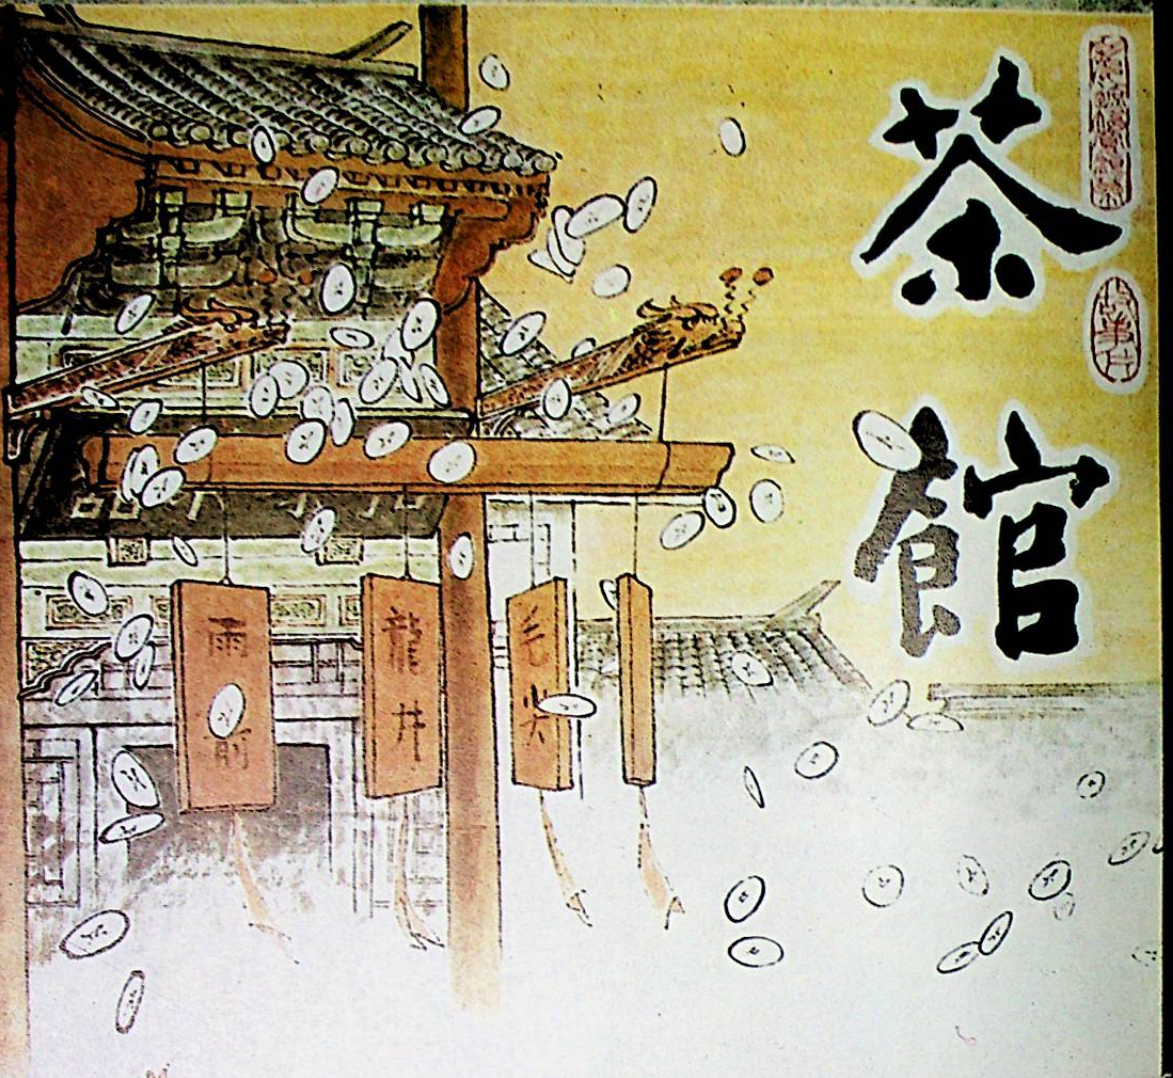 茶館
雨前
龍井
毛尖